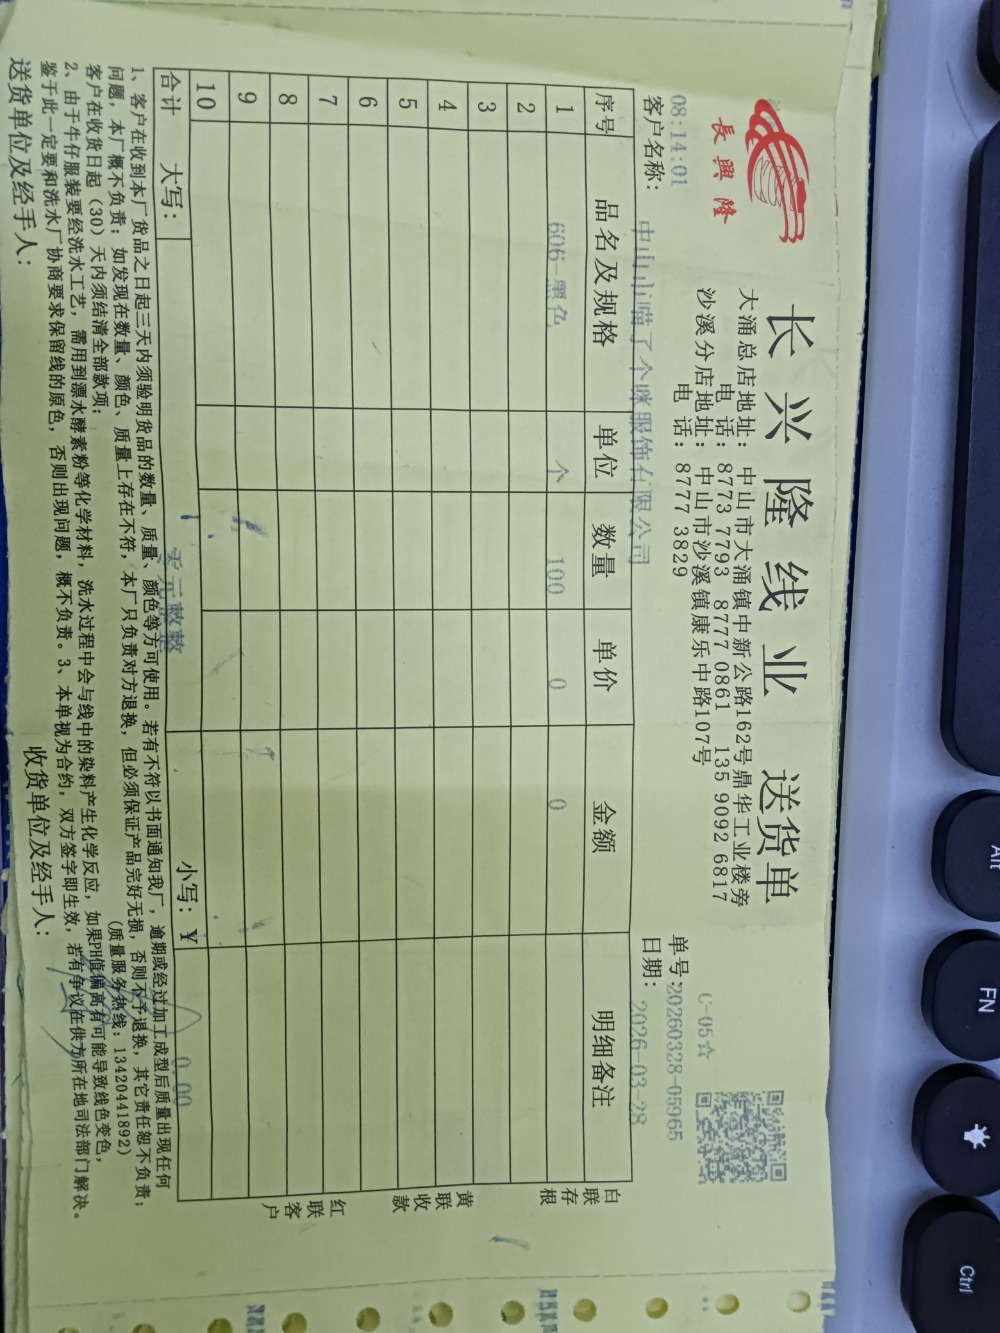 長興隆
长兴隆线业 送货单
大涌总店地址：中山市大涌镇中新公路162号鼎华工业楼旁
电 话：8773 7793 8777 0861 135 9092 6817
沙溪分店地址：中山市沙溪镇康乐中路107号
电 话：8777 3829
C-05☆
08:14:01
单号:20260328-05965
客户名称：中山市喵了个咪服饰有限公司
日期：2026-03-28
序号 品名及规格 单位 数量 单价 金额 明细备注
1 606-黑色 个 100 0 0
2
3
4
5
6
7
8
9
10
合计 大写：零元整整 小写：￥ 0.00
白联存根
黄联收款
红联客户
1、客户在收到本厂货品之日起三天内须验明货品的数量、质量、颜色等方可使用。若有不符以书面通知我厂，逾期或经过加工成型后质量出现任何
问题，本厂概不负责；如发现在数量、颜色、质量上存在不符，本厂只负责对方退换，但必须保证产品完好无损，否则不予退换，其它责任恕不负责；
客户在收货日起（30）天内须结清全部款项；
(质量服务热线：13420441892)
2、由于牛仔服装要经洗水工艺，需用到漂水酵素粉等化学材料，洗水过程中会与线中的染料产生化学反应，如果PH值偏高有可能导致线色变色，
鉴于此一定要和洗水厂协商要求保留线的原色，否则出现问题，概不负责。3、本单视为合约，双方签字即生效，若有争议在供方所在地司法部门解决。
送货单位及经手人：
收货单位及经手人：
Alt
FN
Ctrl